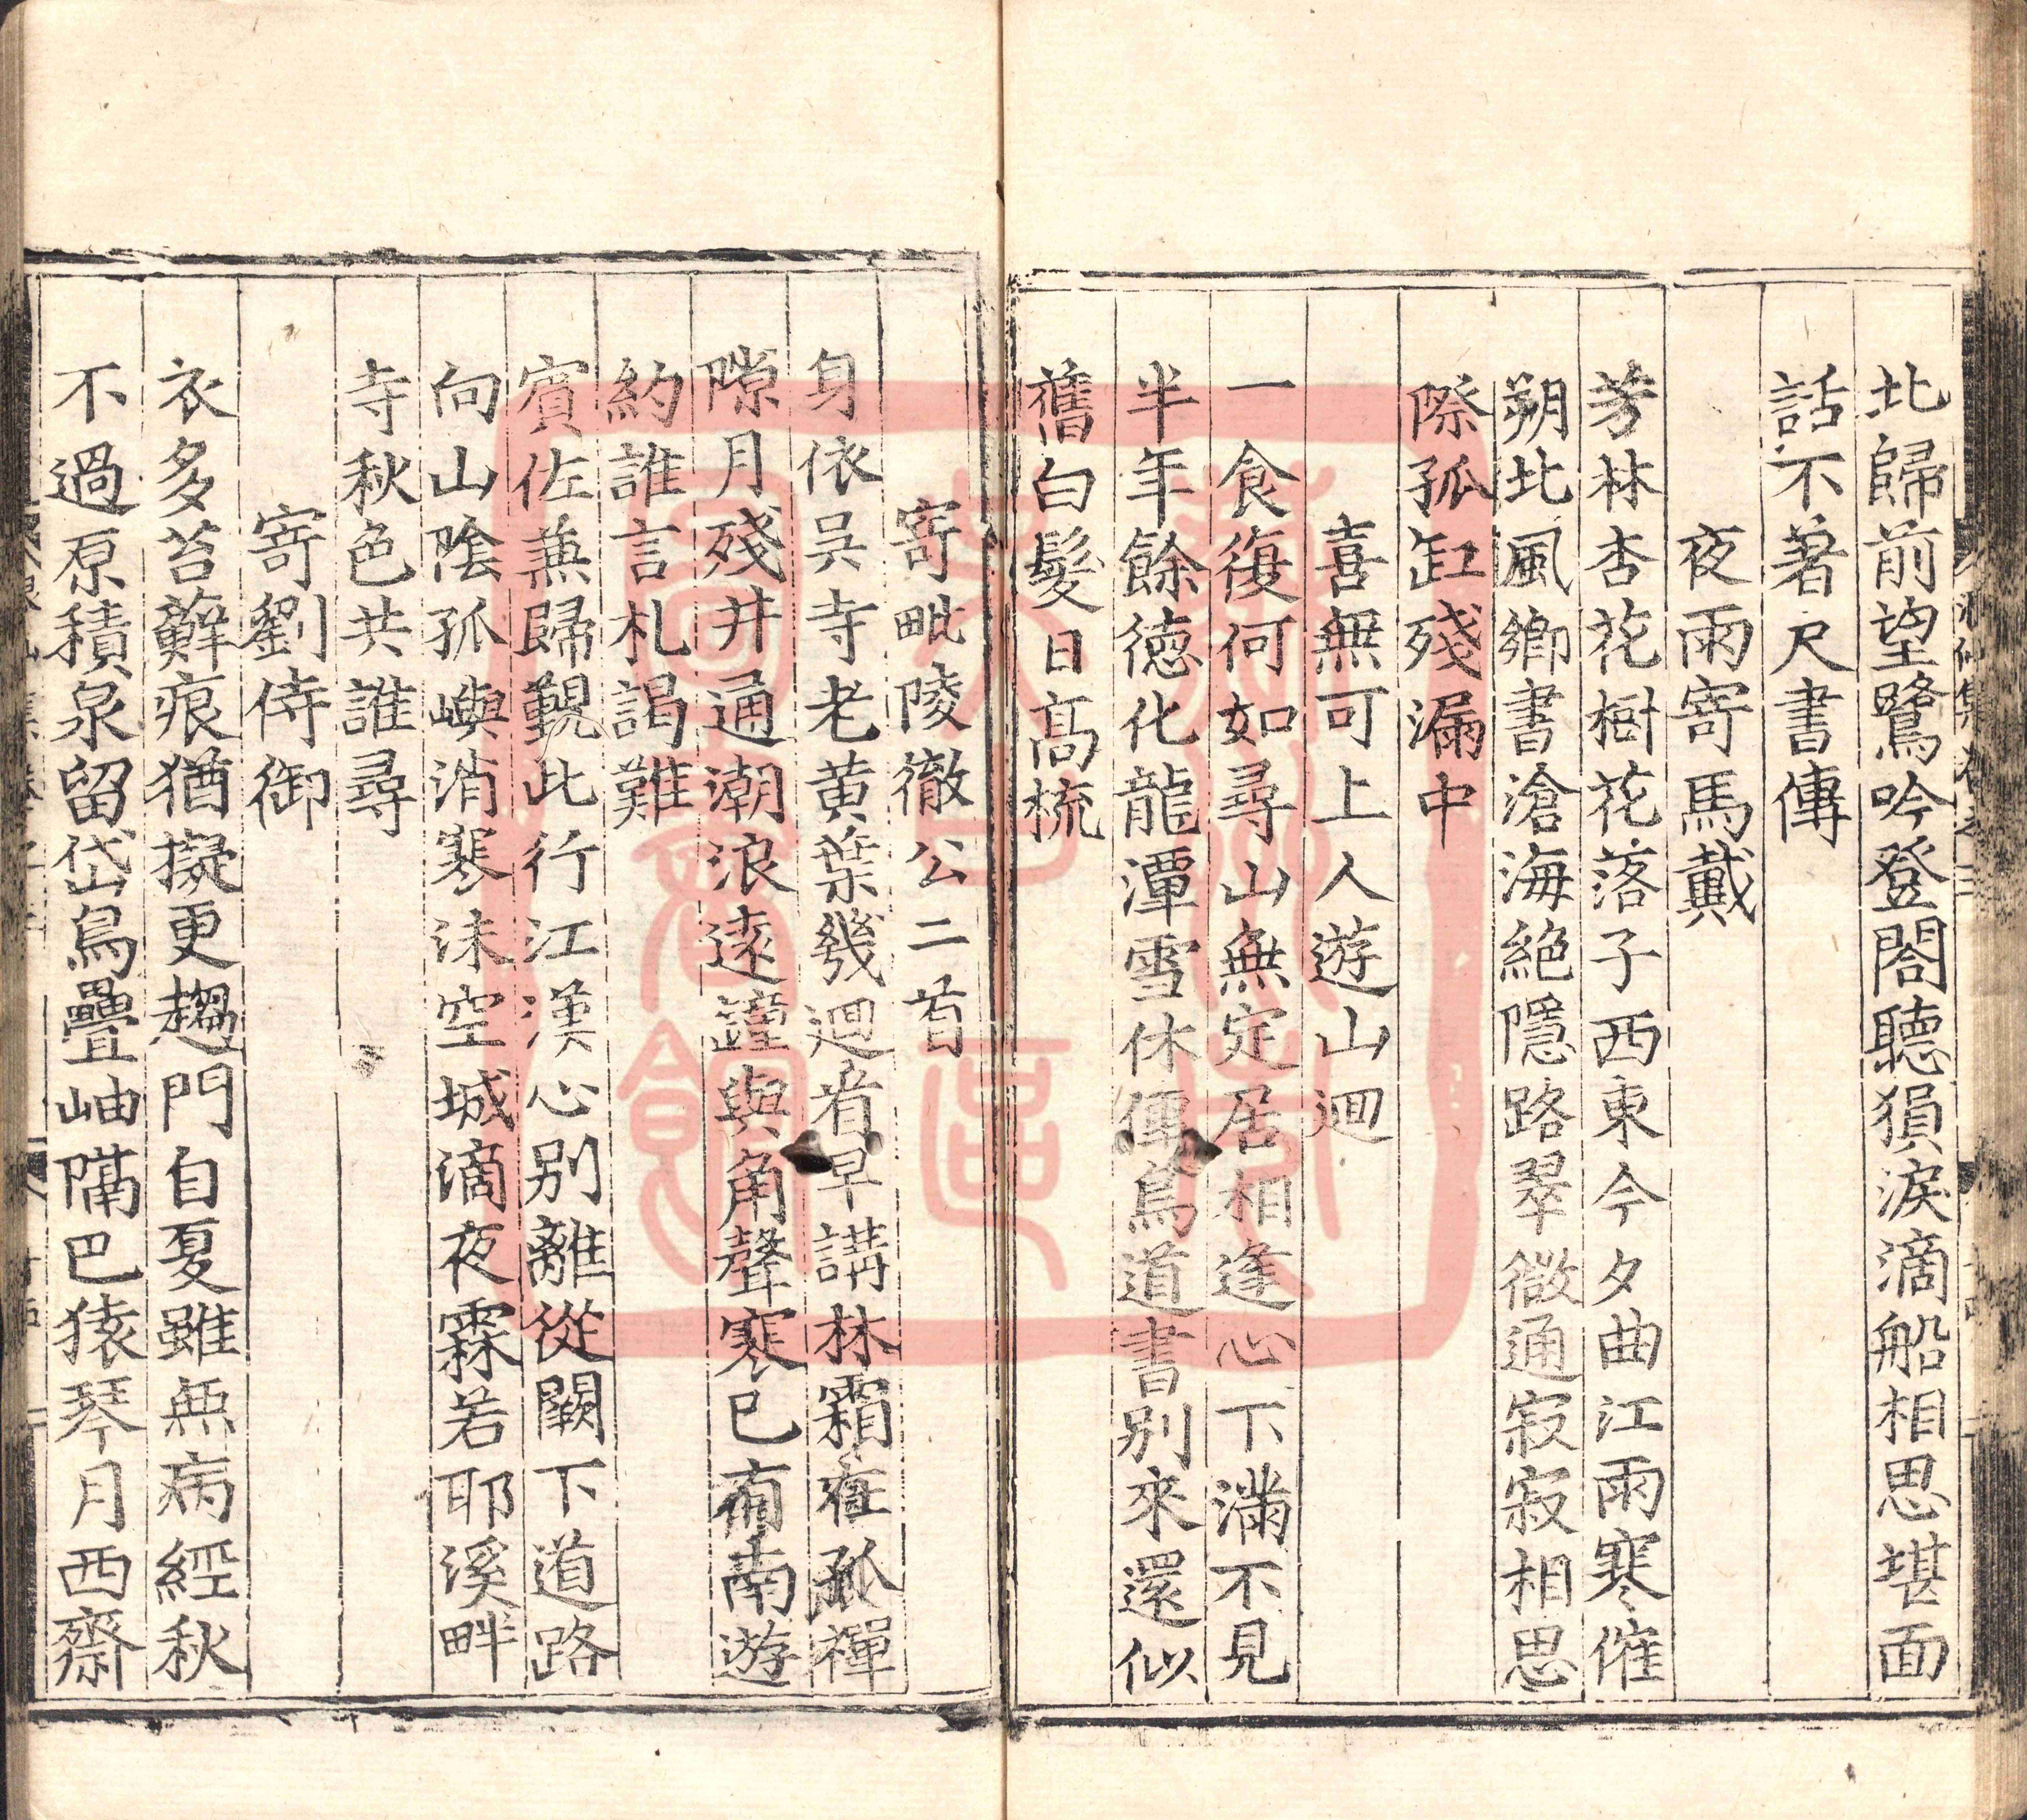 北歸前望鷺吟登閤聽猿淚滴船相思堪面
話不著尺書傳
夜雨寄馬戴
芳林杏花樹花落子西東今夕曲江雨寒催
朔北風鄉書滄海絕隱路翠微通寂寂相思
際孤缸殘漏中
喜無可上人遊山迴
一食復何如尋山無定居相逢心下滿不見
半年餘徳化龍潭雪休傳鳥道書別來還似
舊白髮日髙梳
寄毗陵徹公二首
身依吳寺老黄葉幾迴看早講林霜在孤禪
隙月殘井通潮浪遠鐘與角聲寒已有南遊
約誰言札謁難
賓佐兼歸覲此行江漢心别離從闕下道路
向山陰孤嶼消寒沫空城滴夜霖若耶溪畔
寺秋色共誰尋
寄劉侍御
衣多苔蘚痕猶擬更趨門自夏雖無病經秋
不過原積泉留岱鳥疊岫隔巴猿琴月西齋